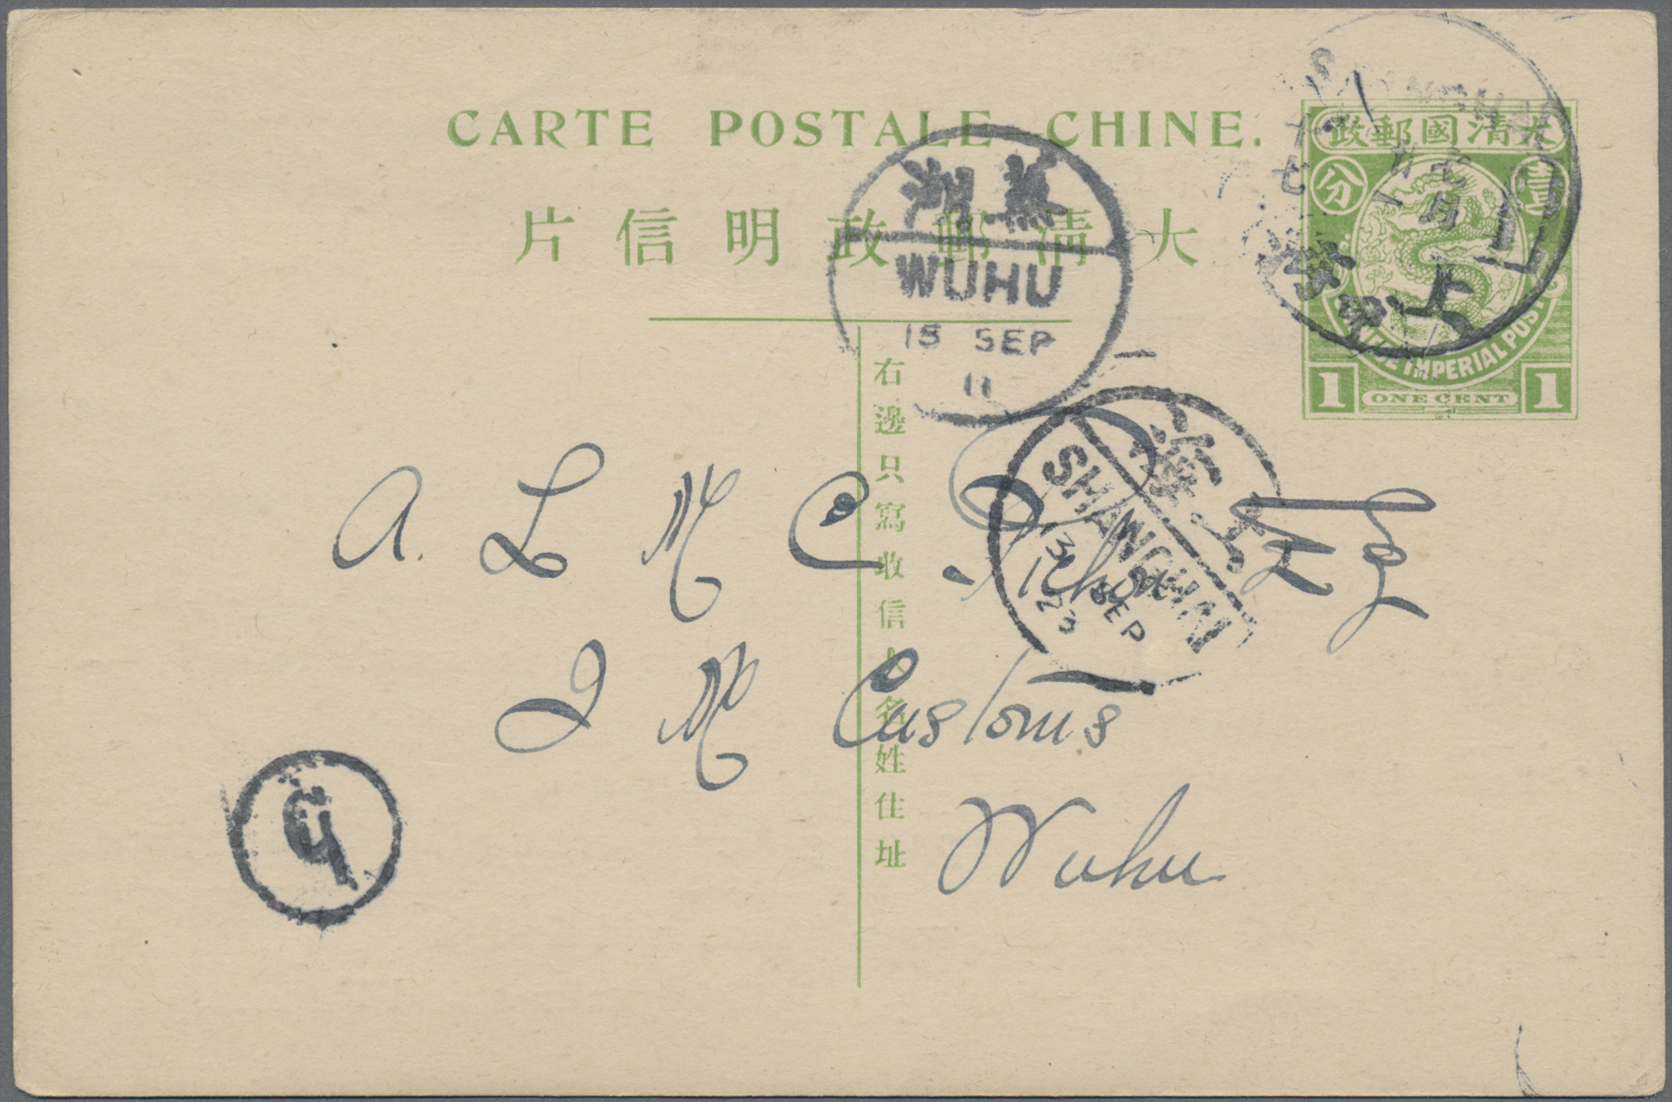 CARTE POSTALE CHINE.
大清郵政明信片
右邊只寫收信人名姓住址
大清國郵政
壹分
IMPERIAL POST
1 ONE CENT 1
上海
蕪湖
WUHU
15 SEP
11
上海
SHANGHAI
13 SEP
A. L. M. C. Esq
I M Customs
Wuhu